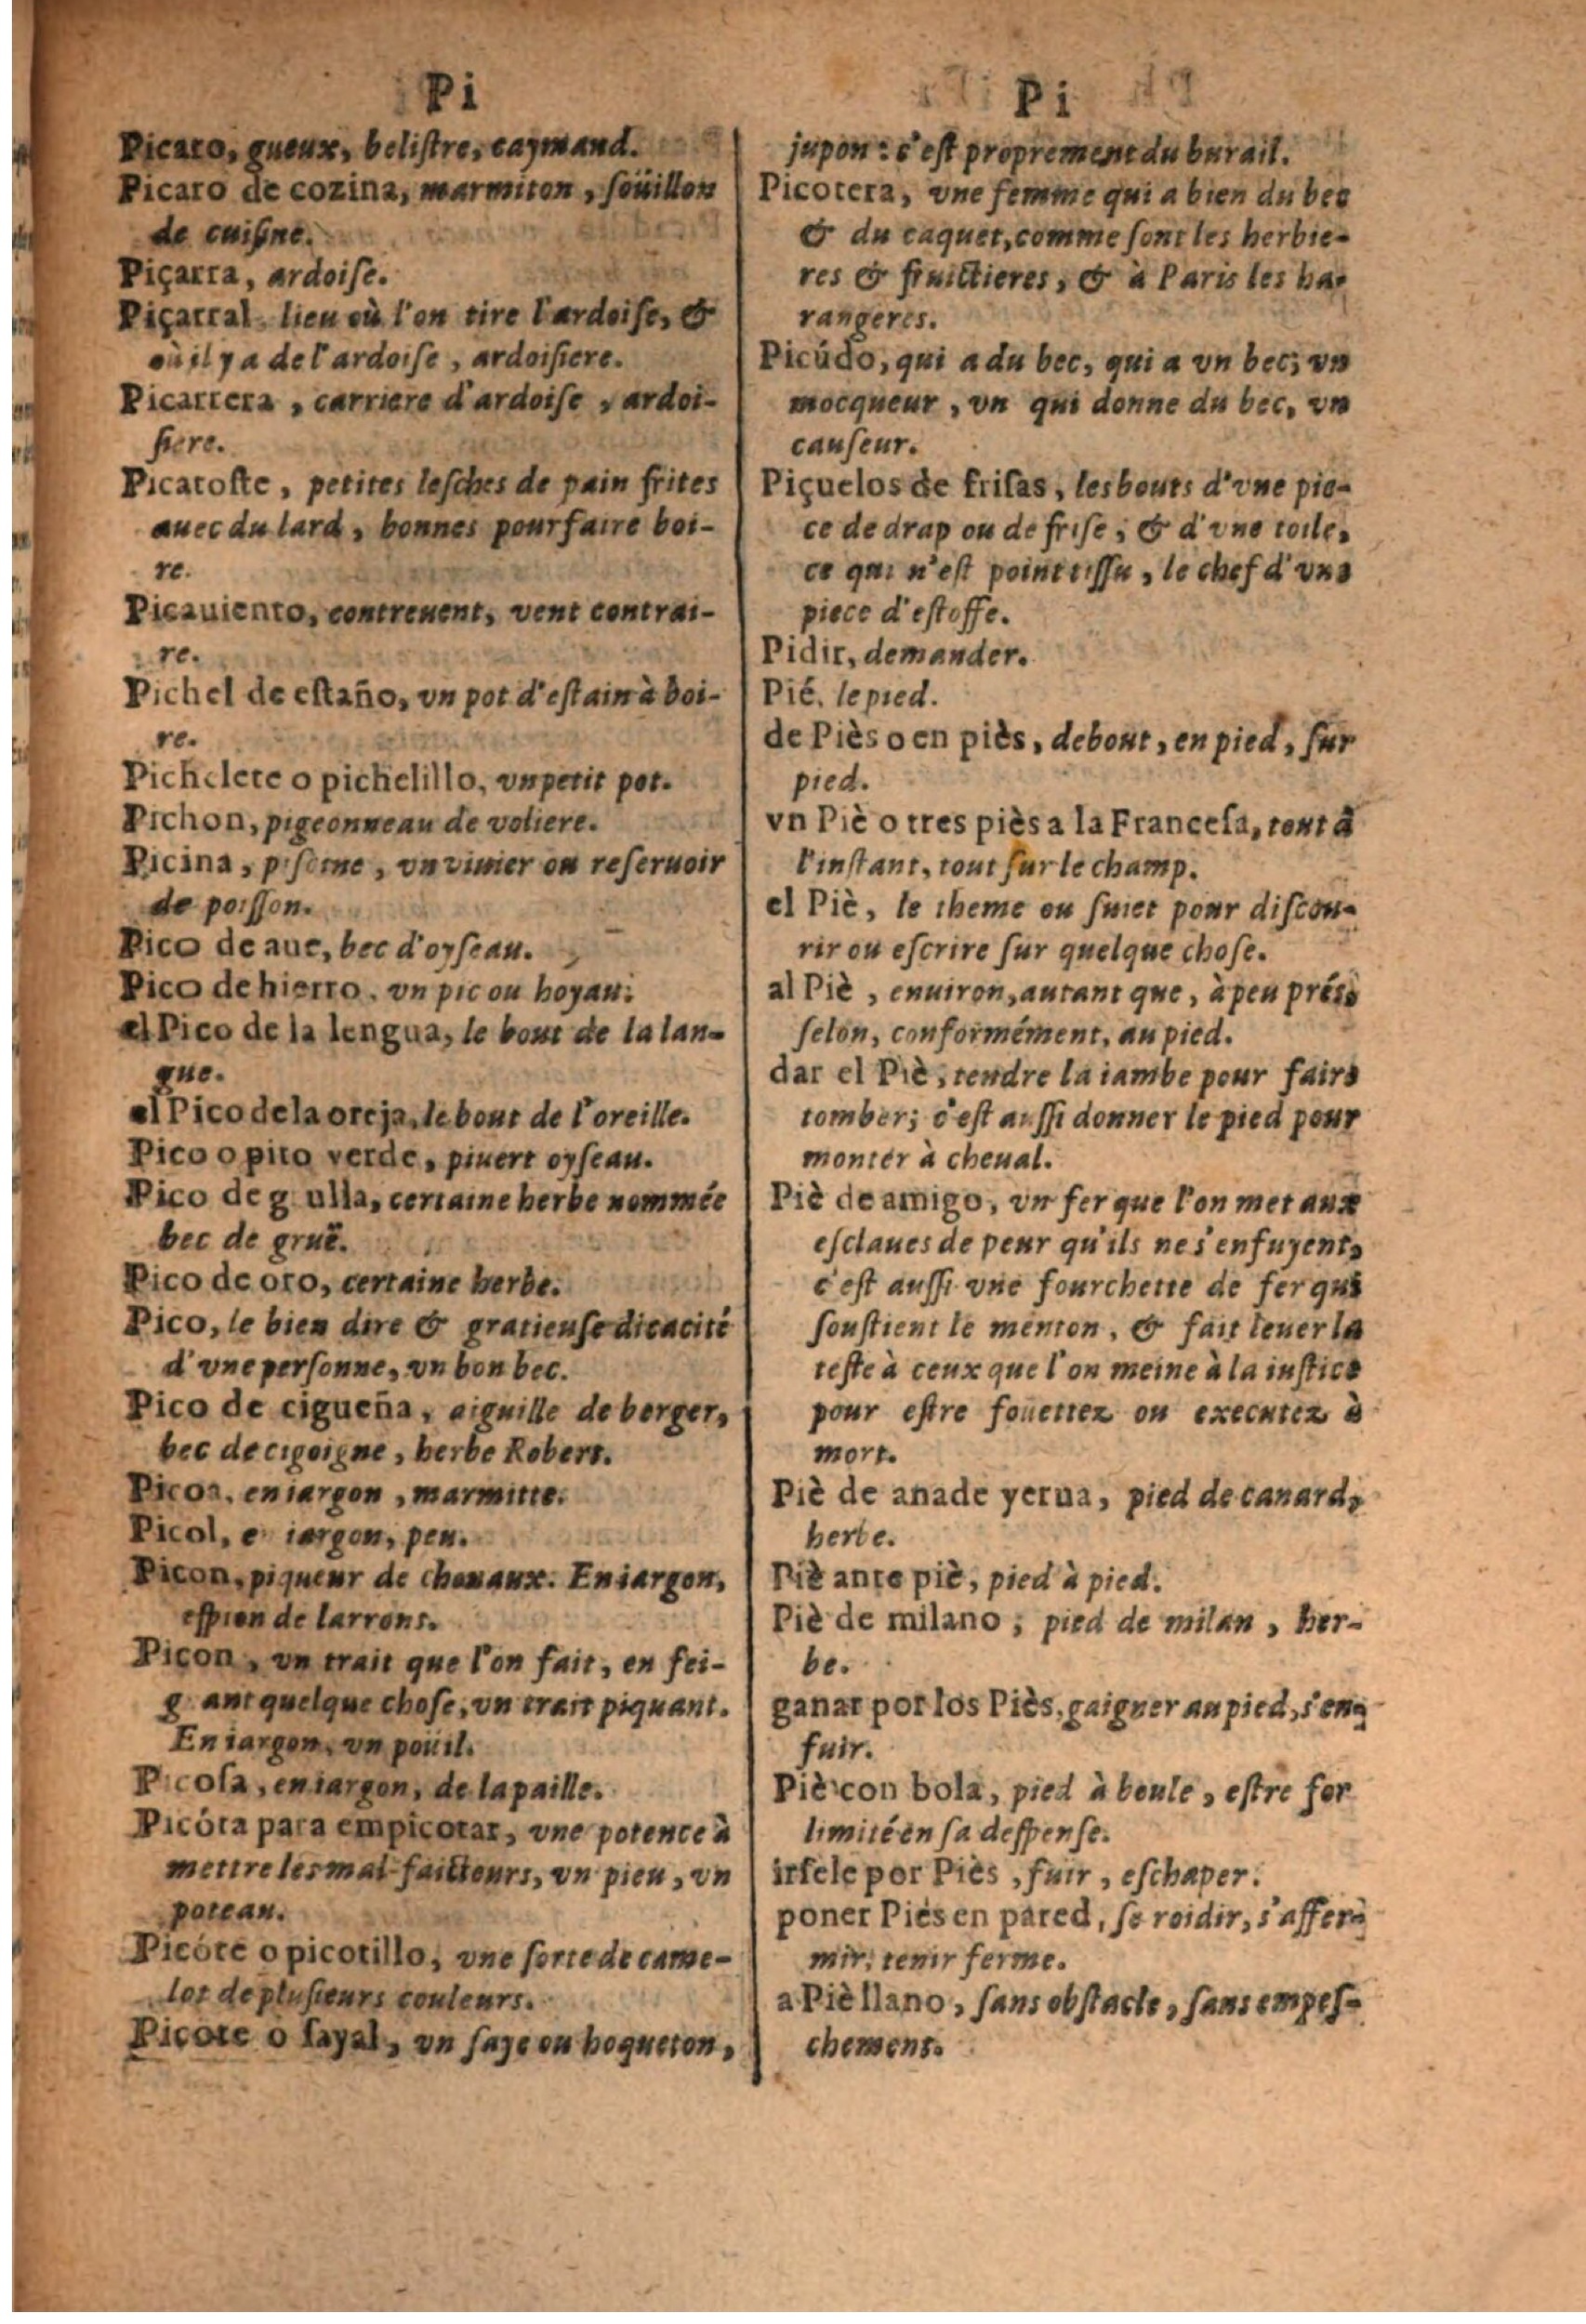 Pi
Picaro, gueux, beliſtre, caymand.
Picaro de cozina, marmiton, ſoüillon
de cuiſine.
Piçarra, ardoiſe.
Piçarral lieu où l'on tire l'ardoiſe, &
où il y a de l'ardoiſe, ardoiſiere.
Picarrera, carriere d'ardoiſe, ardoi-
ſiere.
Picatoſte, petites leſches de pain frites
auec du lard, bonnes pour faire boi-
re.
Picauiento, contreuent, vent contrai-
re.
Pichel de eſtaño, vn pot d'eſtain à boi-
re.
Pichelete o pichelillo, vn petit pot.
Pichon, pigeonneau de voliere.
Picina, piſcine, vn viuier ou reſeruoir
de poiſſon.
Pico de aue, bec d'oyſeau.
Pico de hierro, vn pic ou hoyau.
el Pico de la lengua, le bout de la lan-
gue.
el Pico de la oreja, le bout de l'oreille.
Pico o pito verde, piuert oyſeau.
Pico de g ulla, certaine herbe nommée
bec de gruë.
Pico de oro, certaine herbe.
Pico, le bien dire & gratieuſe dicacité
d'vne perſonne, vn bon bec.
Pico de cigueña, aiguille de berger,
bec de cigoigne, herbe Robert.
Picoa, en iargon, marmitte.
Picol, e iargon, peu.
Picon, piqueur de cheuaux. En iargon,
eſpion de larrons.
Picon, vn trait que l'on fait, en fei-
g ant quelque choſe, vn trait piquant.
En iargon, vn poüil.
Picoſa, en iargon, de la paille.
Picóta para empicotar, vne potence à
mettre les mal-faicteurs, vn pieu, vn
poteau.
Picóte o picotillo, vne ſorte de came-
lot de pluſieurs couleurs.
Picote o ſayal, vn ſaye ou hoqueton,
Pi
jupon: c'eſt proprement du burail.
Picotera, vne femme qui a bien du bec
& du caquet, comme ſont les herbie-
res & fruictieres, & à Paris les ha-
rangeres.
Picúdo, qui a du bec, qui a vn bec; vn
mocqueur, vn qui donne du bec, vn
cauſeur.
Piçuelos de friſas, les bouts d'vne pie-
ce de drap ou de friſe, & d'vne toile,
ce qui n'eſt point tiſſu, le chef d'vne
piece d'eſtoffe.
Pidir, demander.
Pié, le pied.
de Piès o en piès, debout, en pied, ſur
pied.
vn Piè o tres piès a la Franceſa, tout à
l'inſtant, tout ſur le champ.
el Piè, le theme ou ſuiet pour diſcou-
rir ou eſcrire ſur quelque choſe.
al Piè, enuiron, autant que, à peu prés,
ſelon, conformément, au pied.
dar el Piè, tendre la iambe pour faire
tomber; c'eſt auſſi donner le pied pour
monter à cheual.
Piè de amigo, vn fer que l'on met aux
eſclaues de peur qu'ils ne s'enfuyent,
c'eſt auſſi vne fourchette de fer qui
ſouſtient le menton, & fait leuer la
teſte à ceux que l'on meine à la iuſtice
pour eſtre fouettez ou executez à
mort.
Piè de anade yerua, pied de canard,
herbe.
Piè ante piè, pied à pied.
Piè de milano, pied de milan, her-
be.
ganar por los Piès, gaigner au pied, s'en-
fuir.
Piè con bola, pied à boule, eſtre for
limité en ſa deſpenſe.
irſele por Piès, fuir, eſchaper.
poner Piés en pared, ſe roidir, s'affer-
mir, tenir ferme.
a Piè llano, ſans obſtacle, ſans empeſ-
chement.